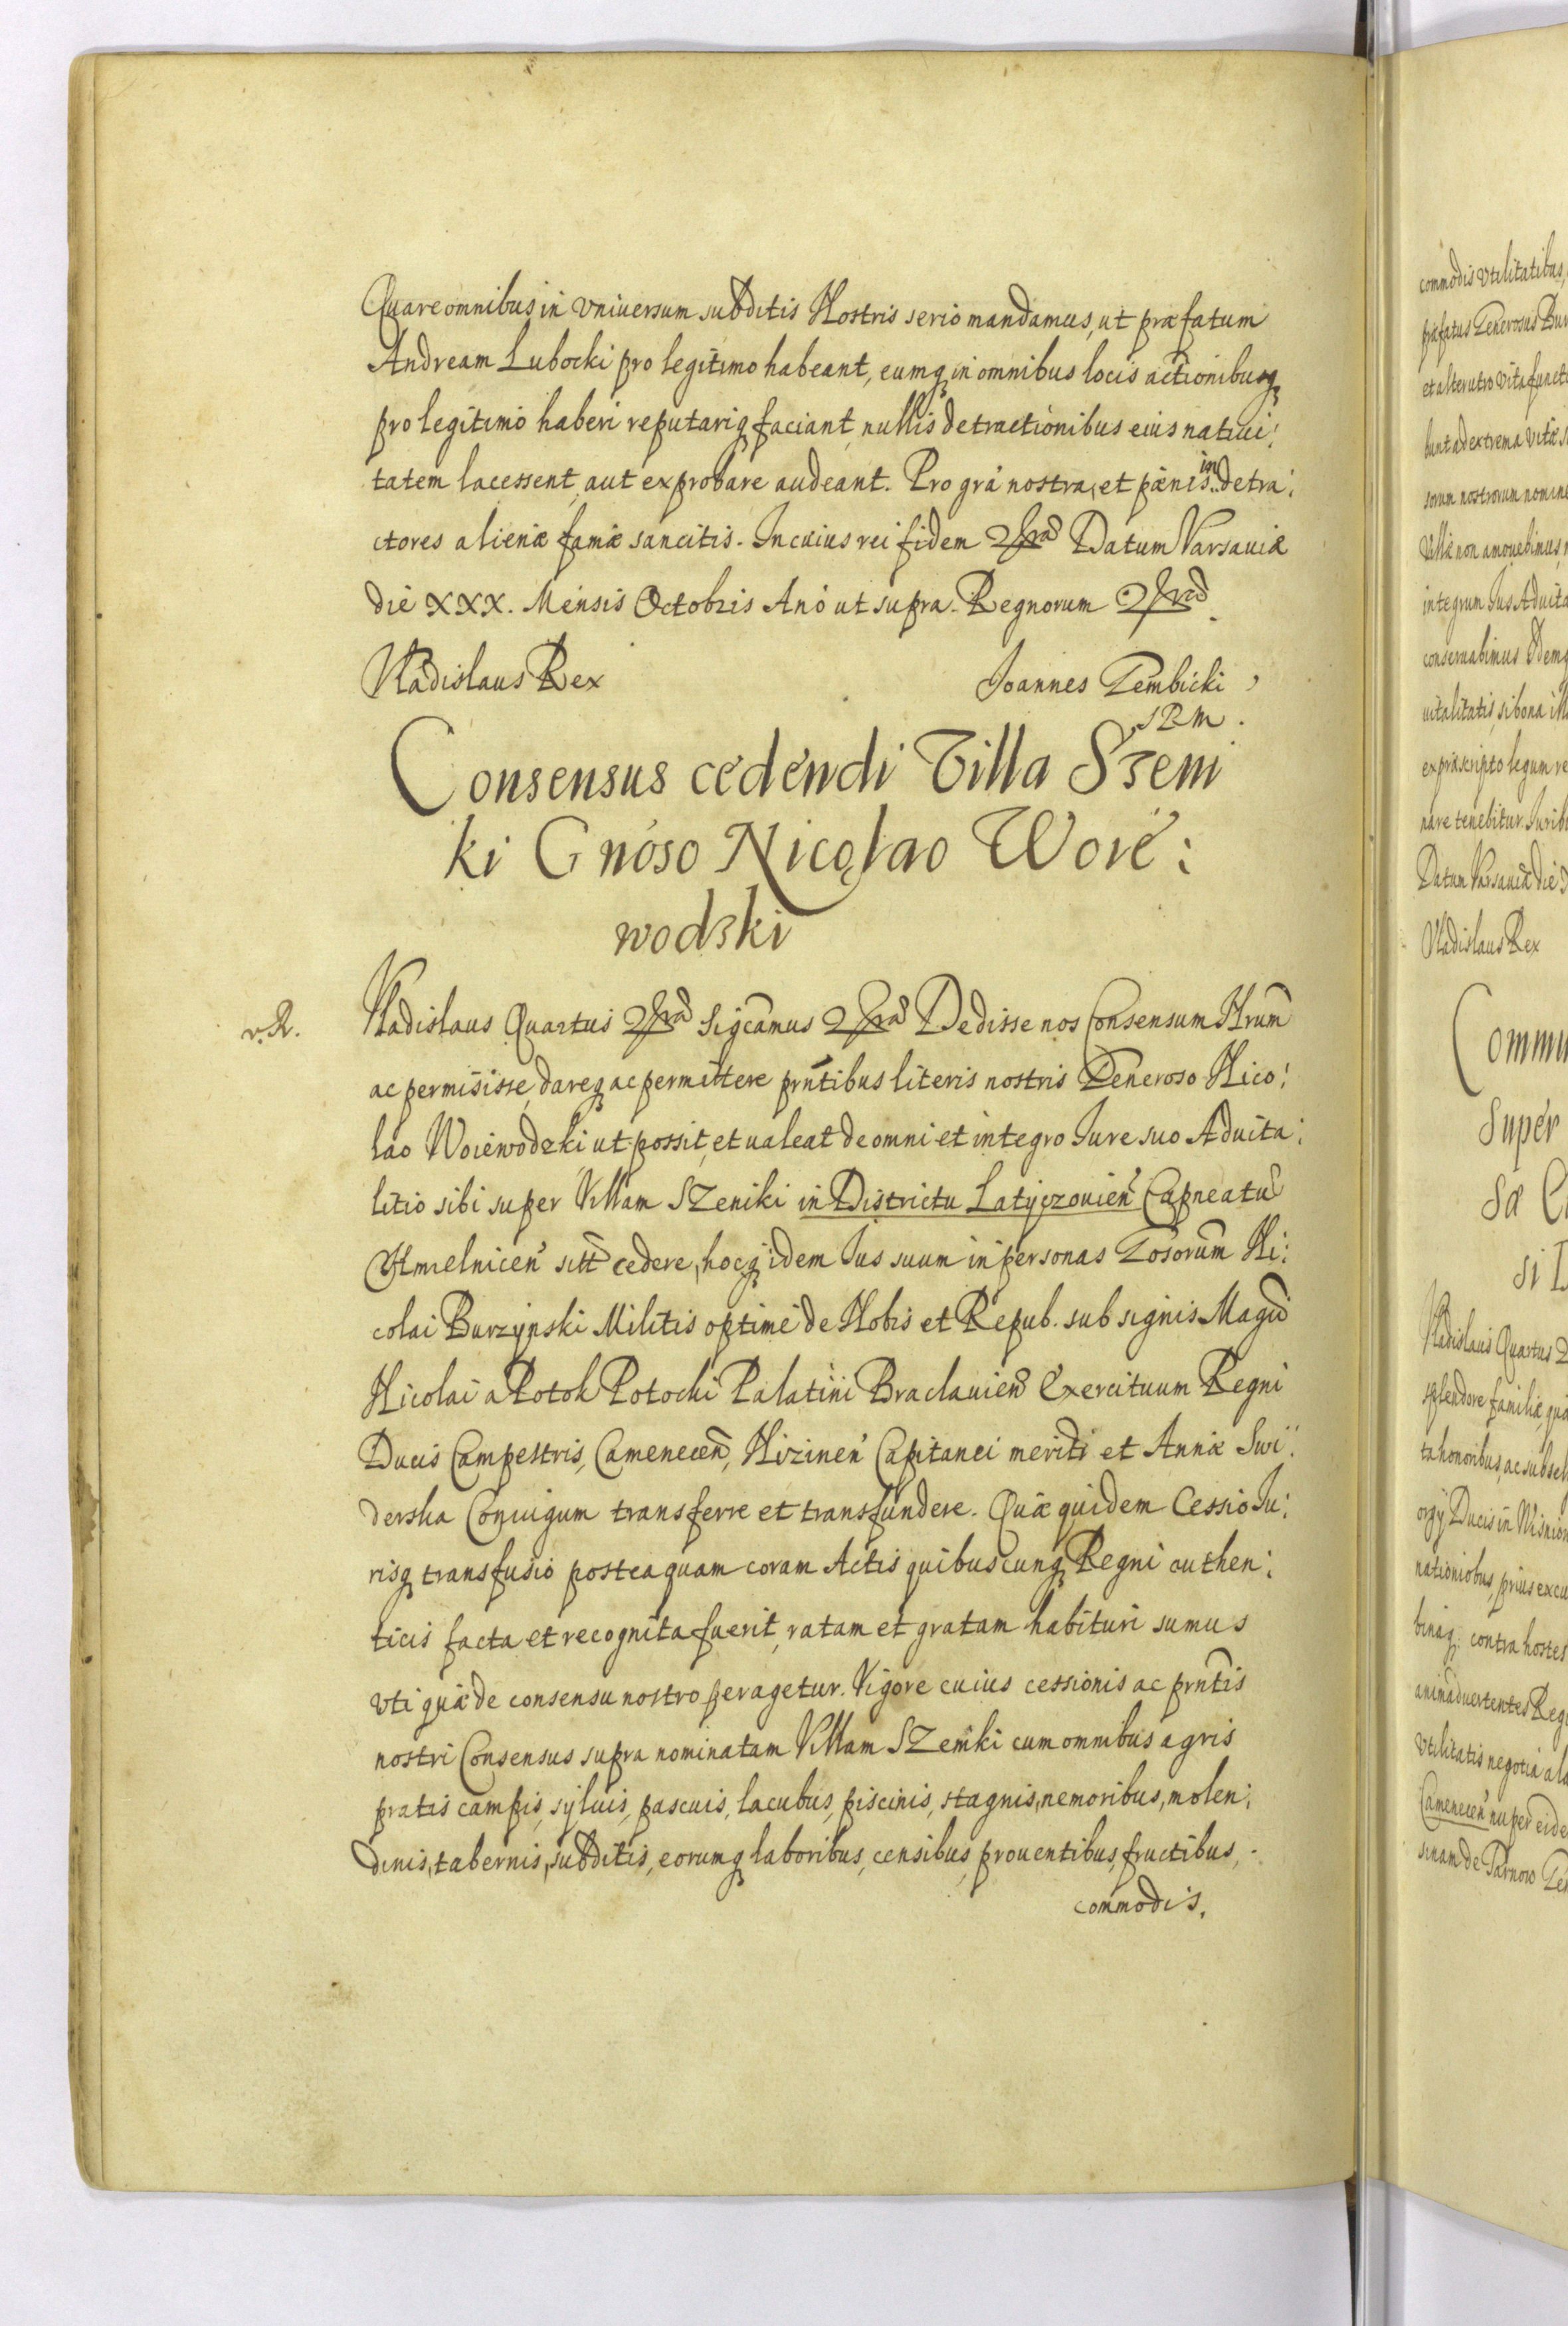 Quare omnibus in vniuersum subditis Nostris serio mandamus, ut præfatum
Andream Lubocki pro legitimo habeant, eumq in omnibus locis actionibusq
pro legitimo haberi reputariq faciant, nullis detractionibus eius natiui:
tatem lacessent, aut exprobare audeant. Pro gra nostra, et pænis in detra:
ctores alienæ famæ sancitis. In cuius rei fidem Datum Varsauiæ
die XXX. Mensis Octobris Ano ut supra. Regnorum
Vladislaus Rex
Joannes Gembicki
SRM.
Consensus cedendi Villa Szeni
ki Gnoso Nicolao Woie:
wodzki
v. R.
Vladislaus Quartus Sigcamus Dedisse nos Consensum Nrum
ac permisisse, dareq ac permittere pntibus literis nostris Generoso Nico:
lao Woiewodzki ut possit, et ualeat de omni et integro Jure suo Aduita:
litio sibi super Villam Szeniki in Districtu Latyczouien Capneatu
Chmelnicen sitt cedere, hocq idem Jus suum in personas Gosorum Ni:
colai Burzynski Militis optime de Nobis et Repub. sub signis Magci
Nicolai a Potok Potocki Palatini Braclauien Exercituum Regni
Ducis Campestris, Camenecen, Nizinen Capitanei meriti et Annæ Swi:
derska Coniugum transferre et transfundere. Quæ quidem Cessio Ju:
risq transfusio posteaquam coram Actis quibuscunq Regni authen:
ticis facta et recognita fuerit, ratam et gratam habituri sumus
vti quæ de consensu nostro peragetur. Vigore cuius cessionis ac pntis
nostri Consensus supra nominatam Villam Szeniki cum omnibus agris
pratis campis, syluis, pascuis, lacubus, piscinis, stagnis, nemoribus, molen:
dinis, tabernis, subditis, eorumq laboribus, censibus, prouentibus, fructibus,
commodis,
commodis vtilitatibus,
præfatus Generosus Bur
et alterutro vita funct
bunt ad extrema vitæ
sorum nostrorum nomine
Villæ non amouebimus,
integrum Jus Aduita
conseruabimus Idemq
uitalitatis, si bona ill
ex præscripto legum re
nare tenebitur. Jurib
Datum Varsauiæ die
Vladislaus Rex
Commu
super
sa C
si
Vladislaus Quartus
splendore familiæ, qua
ta honoribus, ac subsel
orgij Ducis in Wisniow
nationibus, prius excu
binaq: contra hostes
animaduertentes Reg
Vtilitatis negotia ala
Camenecen nuper eide
sinam de Tarnow Ge